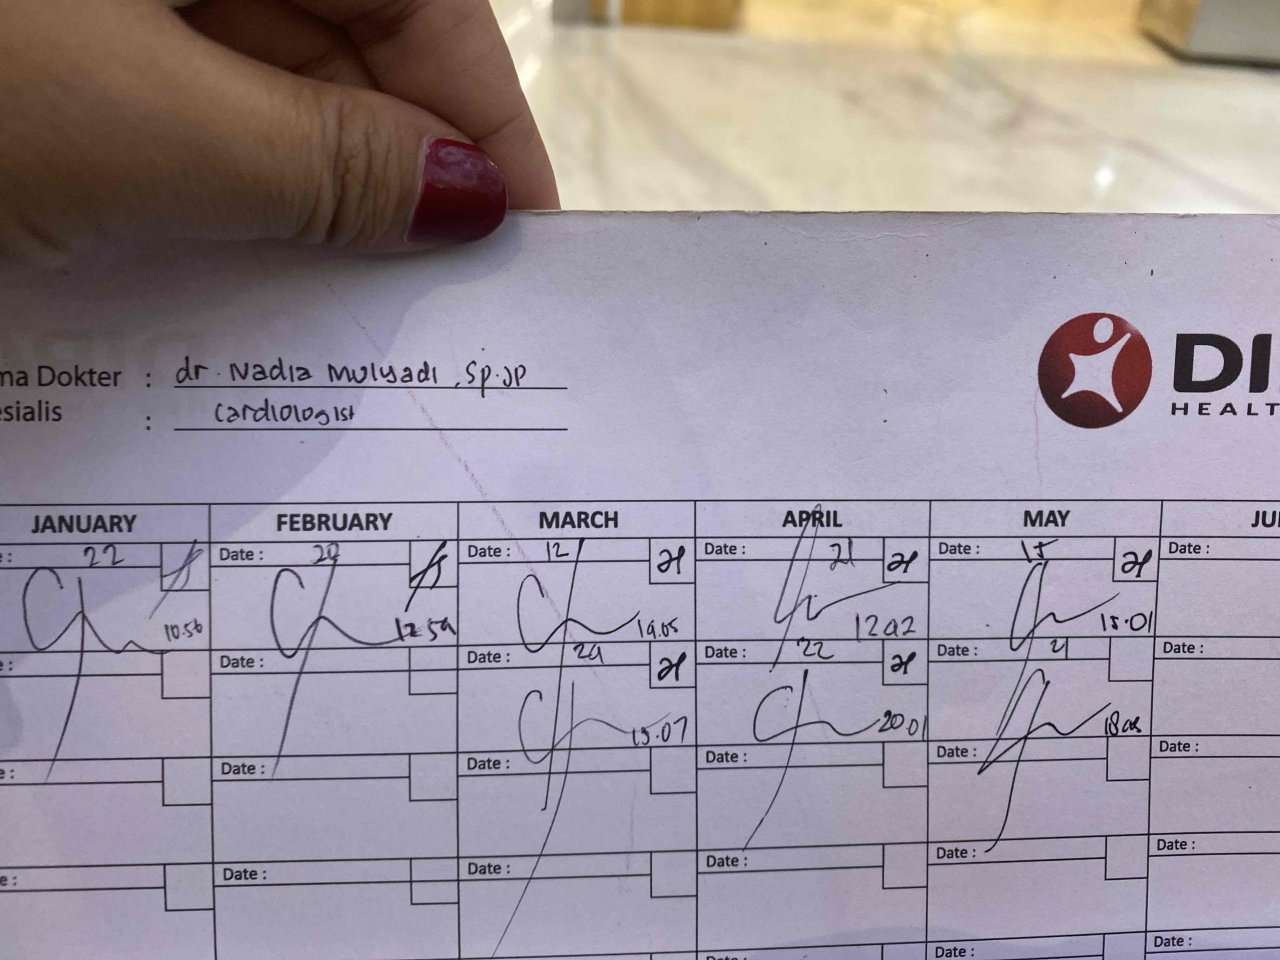 ma Dokter : dr. Nadia Mulyadi, Sp.JP
esialis : Cardiologist
DI
HEALT
JANUARY FEBRUARY MARCH APRIL MAY JU
e : 22 Date : 29 Date : 12 Date : 21 Date : 15 Date :
10.56 12.59 19.05 12.02 15.01
e : Date : Date : 29 Date : 22 Date : 21 Date :
15.07 20.01 18.08
e : Date : Date : Date : Date : Date :
e : Date : Date : Date : Date : Date :
Date : Date :